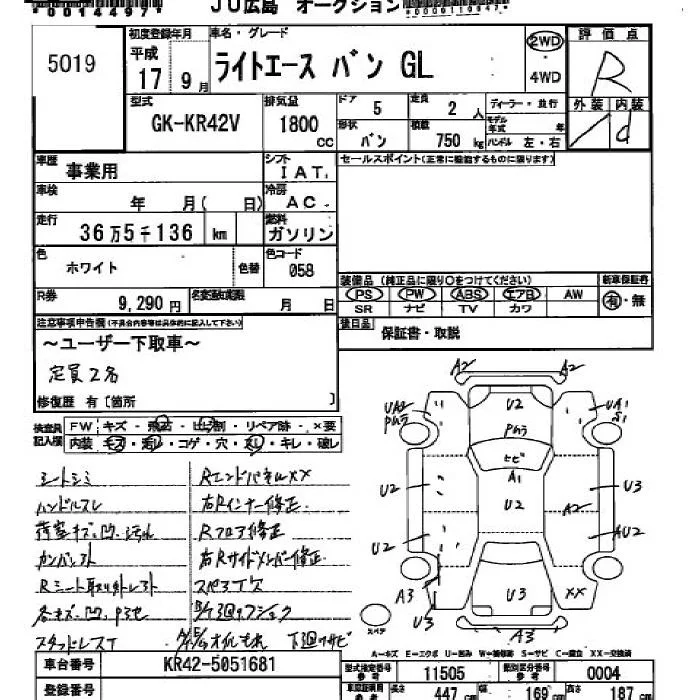 *0014497* JU広島 オークション
5019
初度登録年月 車名・グレード
平成 17 9月 ライトエース バン GL
2WD ・ 4WD
評価点 R
外装 内装 d
型式 GK-KR42V
排気量 1800 cc
ドア 5 定員 2人
形状 バン 積載 750 kg
ディーラー・並行
モデル年式 年
ハンドル 左・右
車歴 事業用
シフト IAT.
セールスポイント(正常に機能するものに限ります)
車検 年 月( 日)
冷房 AC.
走行 36万5千136 km
燃料 ガソリン
色 ホワイト 色替
色コード 058
装備品(純正品に限り○をつけてください) 新車保証書
PS PW ABS エアB AW 有・無
SR ナビ TV カワ
R券 9,290円 名変通知期限 月 日
後日品 保証書・取説
注意事項申告欄(不具合内容等は具体的に記入して下さい)
~ユーザー下取車~
定員2名
修復歴 有〔箇所 〕
検査員記入欄
FW キズ・飛石・出き割・リペア跡・×要
内装 キズ・汚レ・コゲ・穴・スレ・キレ・破レ
シートシミ RエンドパネルXX
ハンドルスレ 右Rインナー修正
荷室キズ、凹、汚れ Rフロア修正
カンバンアト 右Rサイドメンバー修正
Rシート取り外レアト スペア欠
各キズ、凹
スタッドレスT 下廻サビ
A2 A2
U2
UA2 UA1
S1
ヒビ
A1
U2 U2 U3
A2
U2 AU2
A3 U3 XX
U3
スペア A3
A-キズ E-エクボ U-凹み W-補修跡 S-サビ C-腐食 XX-交換済
車台番号 KR42-5051681
型式指定番号参考 11505 類別区分番号参考 0004
登録番号
長さ 447 cm 幅 169 cm 高さ 187 cm